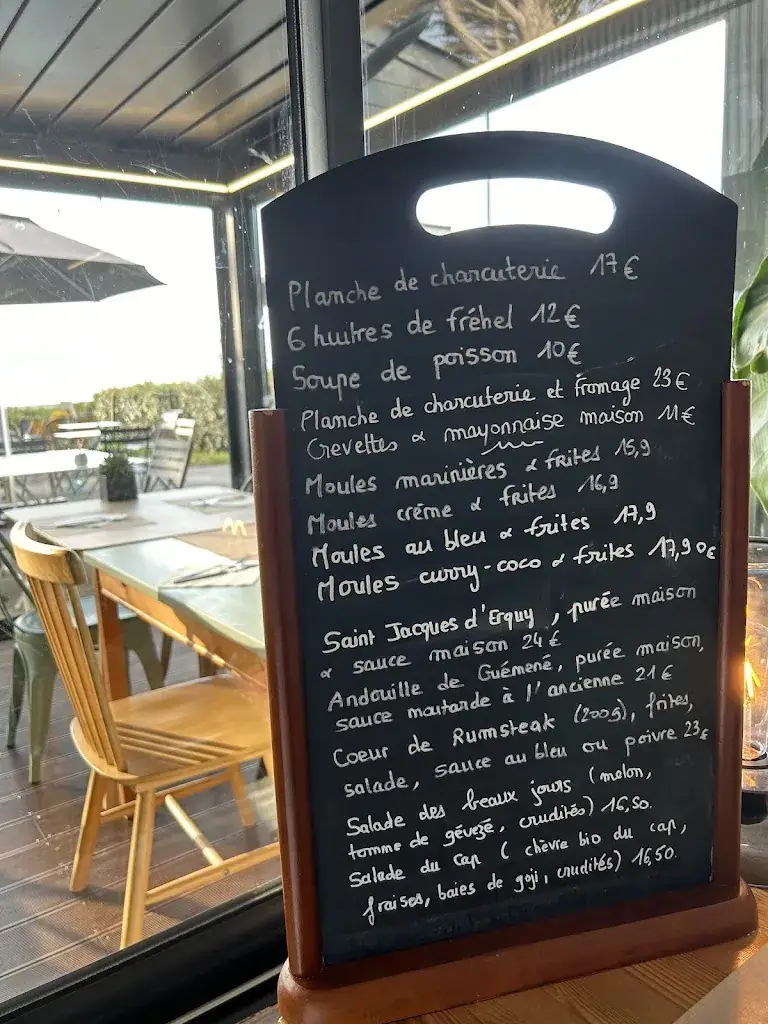 Planche de charcuterie 17€
6 huitres de fréhel 12€
Soupe de poisson 10€
Planche de charcuterie et fromage 23€
Crevettes & mayonnaise maison 11€
Moules marinières & frites 15,9
Moules crème & frites 16,9
Moules au bleu & frites 17,9
Moules curry-coco & frites 17,90€
Saint Jacques d'Erquy, purée maison
& sauce maison 24€
Andouille de Guémené, purée maison,
sauce moutarde à l'ancienne 21€
Coeur de Rumsteak (200g), frites,
salade, sauce au bleu ou poivre 23€
Salade des beaux jours (melon,
tomme de gévezé, crudités) 16,50.
Salade du Cap (chèvre bio du cap,
fraises, baies de goji, crudités) 16,50.